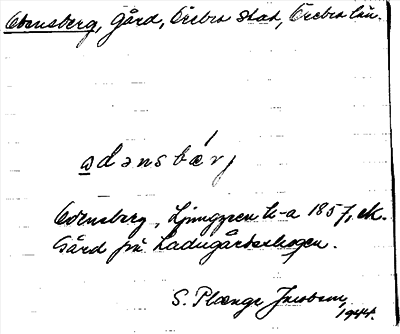 Odensberg, Gård, Örebro stad, Örebro län.
adənsbærj
Odensberg, Ljunggren h-a 1857, ek.
Gård på Ladugårdsskogen.
S. Plænge Jacobson,
1944.